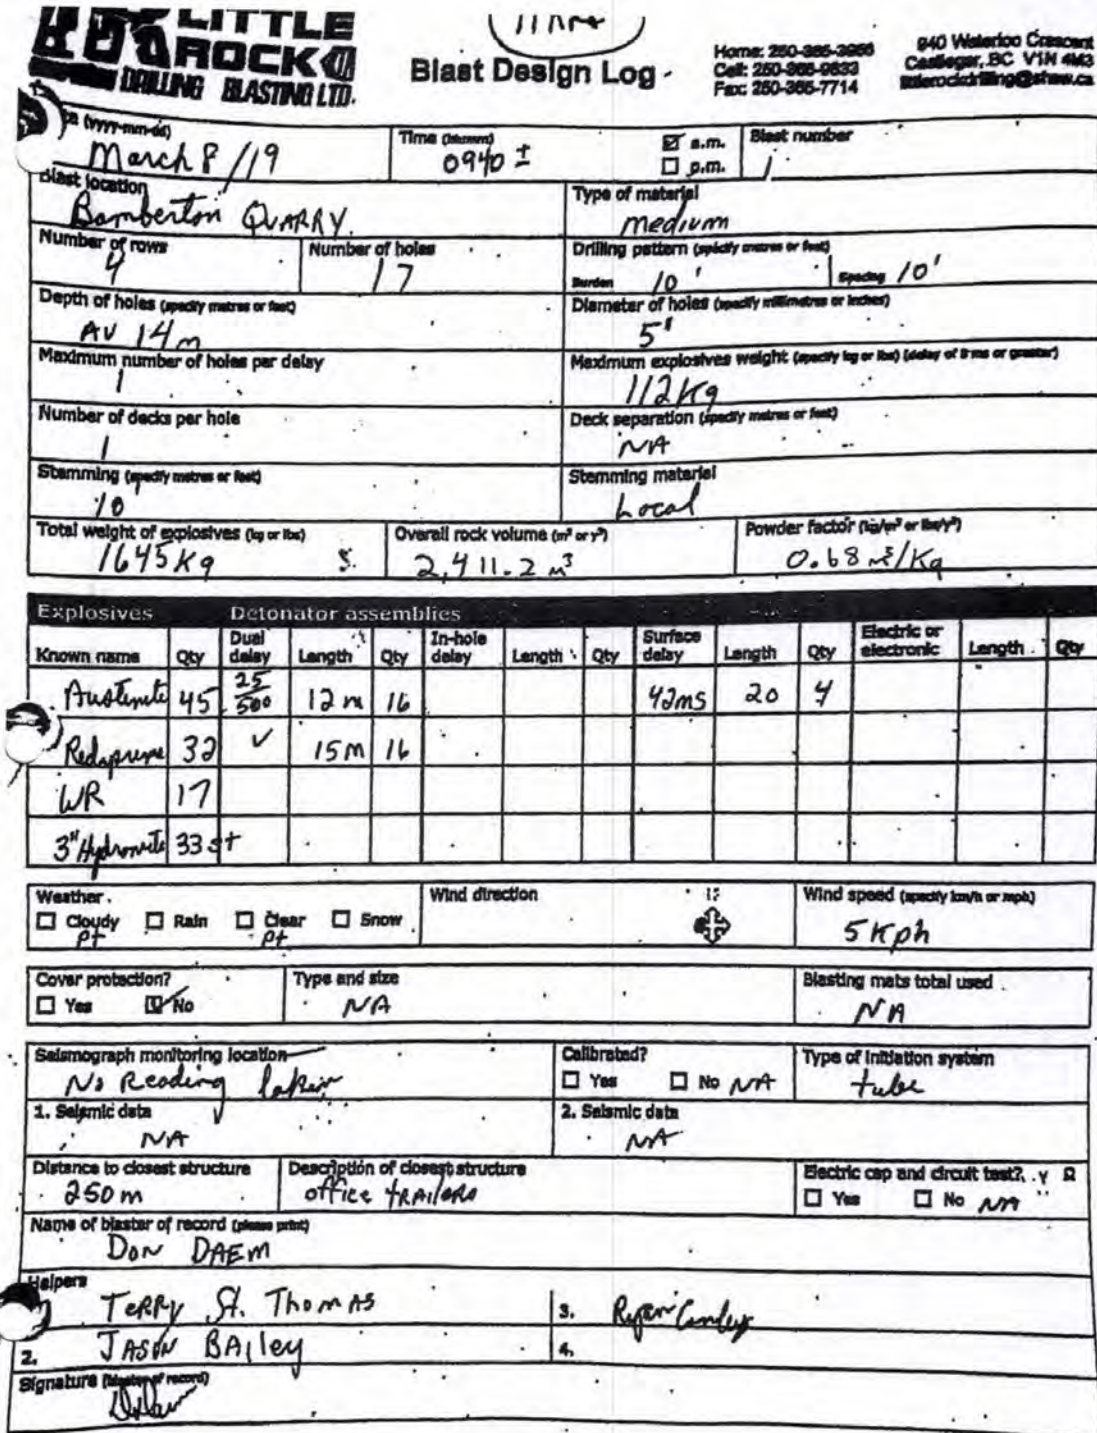 LITTLE
ROCK
DRILLING BLASTING LTD.
Blast Design Log
Home: 250-365-3956
Cell: 250-365-9833
Fax: 250-365-7714
940 Waterloo Crescent
Castlegar, BC V1N 4M3
littlerockdrilling@shaw.ca
(yyyy-mm-dd)
March 8/19
Time
0940 ±
☑ a.m.
☐ p.m.
Blast number
1
Blast location
Bamberton QUARRY.
Type of material
medium
Number of rows
4
Number of holes
17
Drilling pattern (specify metres or feet)
Burden 10'
Spacing 10'
Depth of holes (specify metres or feet)
AV 14m
Diameter of holes (specify millimetres or inches)
5"
Maximum number of holes per delay
1
Maximum explosives weight (specify kg or lbs) (delay of 8 ms or greater)
112 Kg
Number of decks per hole
1
Deck separation (specify metres or feet)
NA
Stemming (specify metres or feet)
10
Stemming material
Local
Total weight of explosives (kg or lbs)
1645 Kg
Overall rock volume (m³ or y³)
2,411.2 m³
Powder factor (kg/m³ or lbs/y³)
0.68 m³/Kg
Explosives Detonator assemblies
Known name Qty Dual delay Length Qty In-hole delay Length Qty Surface delay Length Qty Electric or electronic Length Qty
Austenite 45 25/500 12 m 16 42ms 20 4
Redaprime 32 ✓ 15m 16
WR 17
3" Hydromite 33 st
Weather
☐ Cloudy ☐ Rain ☐ Clear ☐ Snow
pt pt
Wind direction
Wind speed (specify km/h or mph)
5 Kph
Cover protection?
☐ Yes ☑ No
Type and size
NA
Blasting mats total used
NA
Seismograph monitoring location
No Reading taken
Calibrated?
☐ Yes ☐ No NA
Type of initiation system
tube
1. Seismic data
NA
2. Seismic data
NA
Distance to closest structure
250 m
Description of closest structure
office trailers
Electric cap and circuit test? Y Ω
☐ Yes ☐ No NA
Name of blaster of record (please print)
DON DAEM
Helpers
Terry St. Thomas
3. Ryan
2. JASON BAiley
4.
Signature (blaster of record)